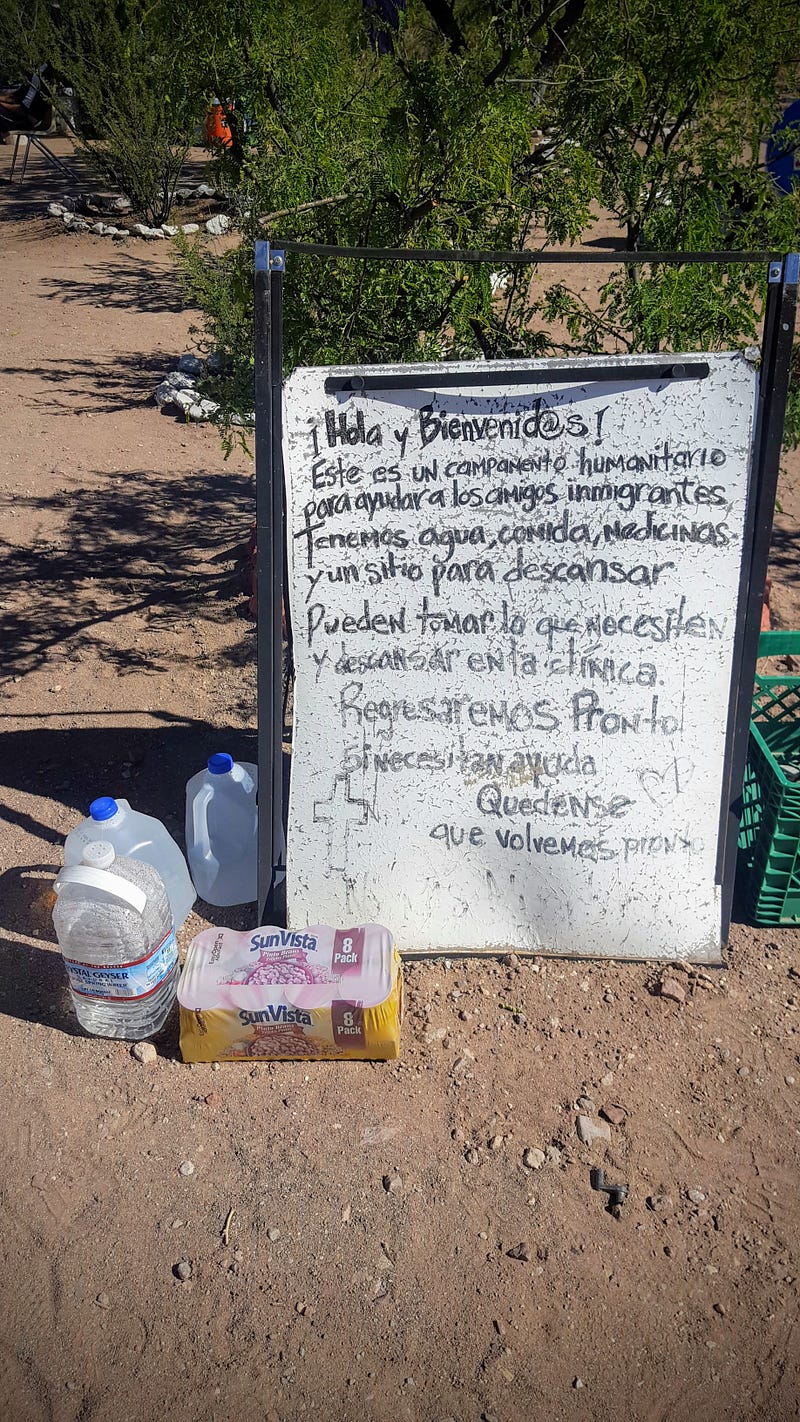 ¡Hola y Bienvenid@s!
Este es un campamento humanitario
para ayudar a los amigos inmigrantes
Tenemos agua, comida, medicinas
y un sitio para descansar
Pueden tomar lo que necesiten
y descansar en la clínica.
Regresaremos Pronto
Si necesitan ayuda
Quedense
que volvemos pronto
CRYSTAL GEYSER
SPRING WATER
SunVista
Pinto Beans
8
Pack
SunVista
Pinto Beans
8
Pack